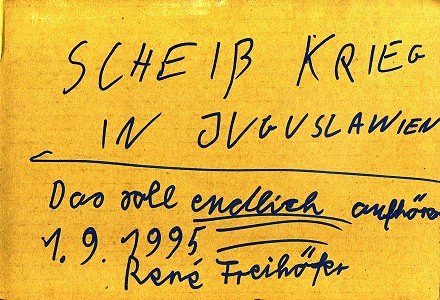 SCHEIß KRIEG
IN JUGUSLAWIEN
Das soll endlich aufhören
1.9.1995
René Freihöfer